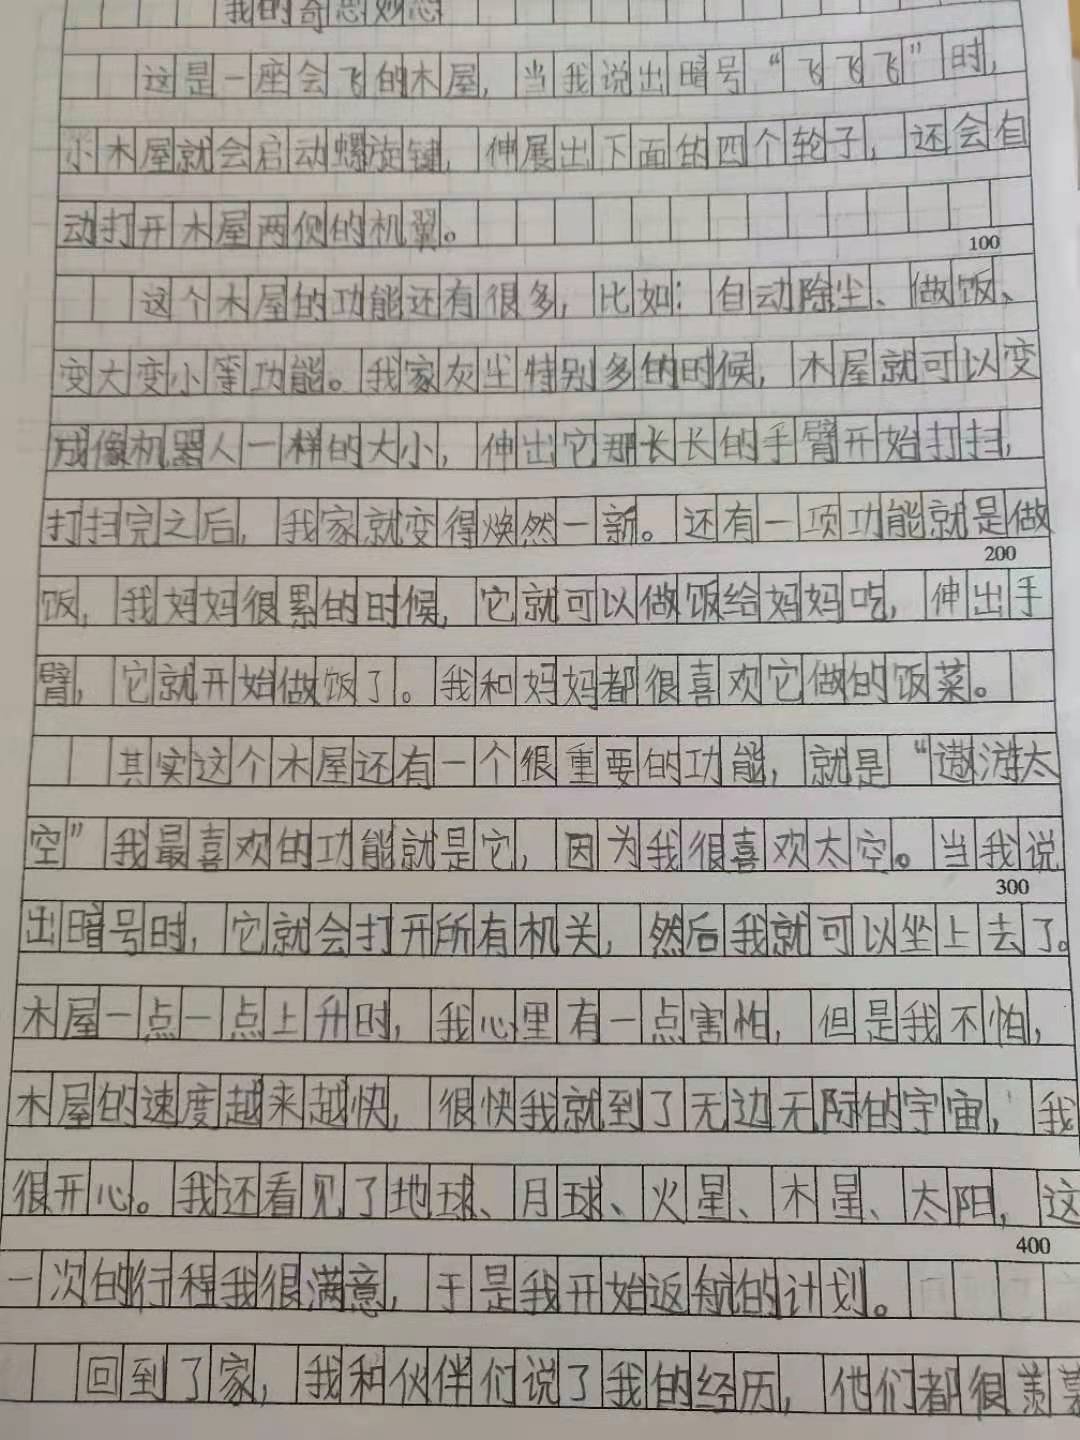 我的奇思妙想
这是一座会飞的木屋，当我说出暗号“飞飞飞”时，
小木屋就会启动螺旋键，伸展出下面的四个轮子，还会自
动打开木屋两侧的机翼。
100
这个木屋的功能还有很多，比如：自动除尘、做饭、
变大变小等功能。我家灰尘特别多的时候，木屋就可以变
成像机器人一样的大小，伸出它那长长的手臂开始打扫，
打扫完之后，我家就变得焕然一新。还有一项功能就是做
200
饭，我妈妈很累的时候，它就可以做饭给妈妈吃，伸出手
臂，它就开始做饭了。我和妈妈都很喜欢它做的饭菜。
其实这个木屋还有一个很重要的功能，就是“遨游太
空”我最喜欢的功能就是它，因为我很喜欢太空。当我说
300
出暗号时，它就会打开所有机关，然后我就可以坐上去了。
木屋一点一点上升时，我心里有一点害怕，但是我不怕，
木屋的速度越来越快，很快我就到了无边无际的宇宙，我
很开心。我还看见了地球、月球、火星、木星、太阳，这
400
一次的行程我很满意，于是我开始返航的计划。
回到了家，我和伙伴们说了我的经历，他们都很羡慕